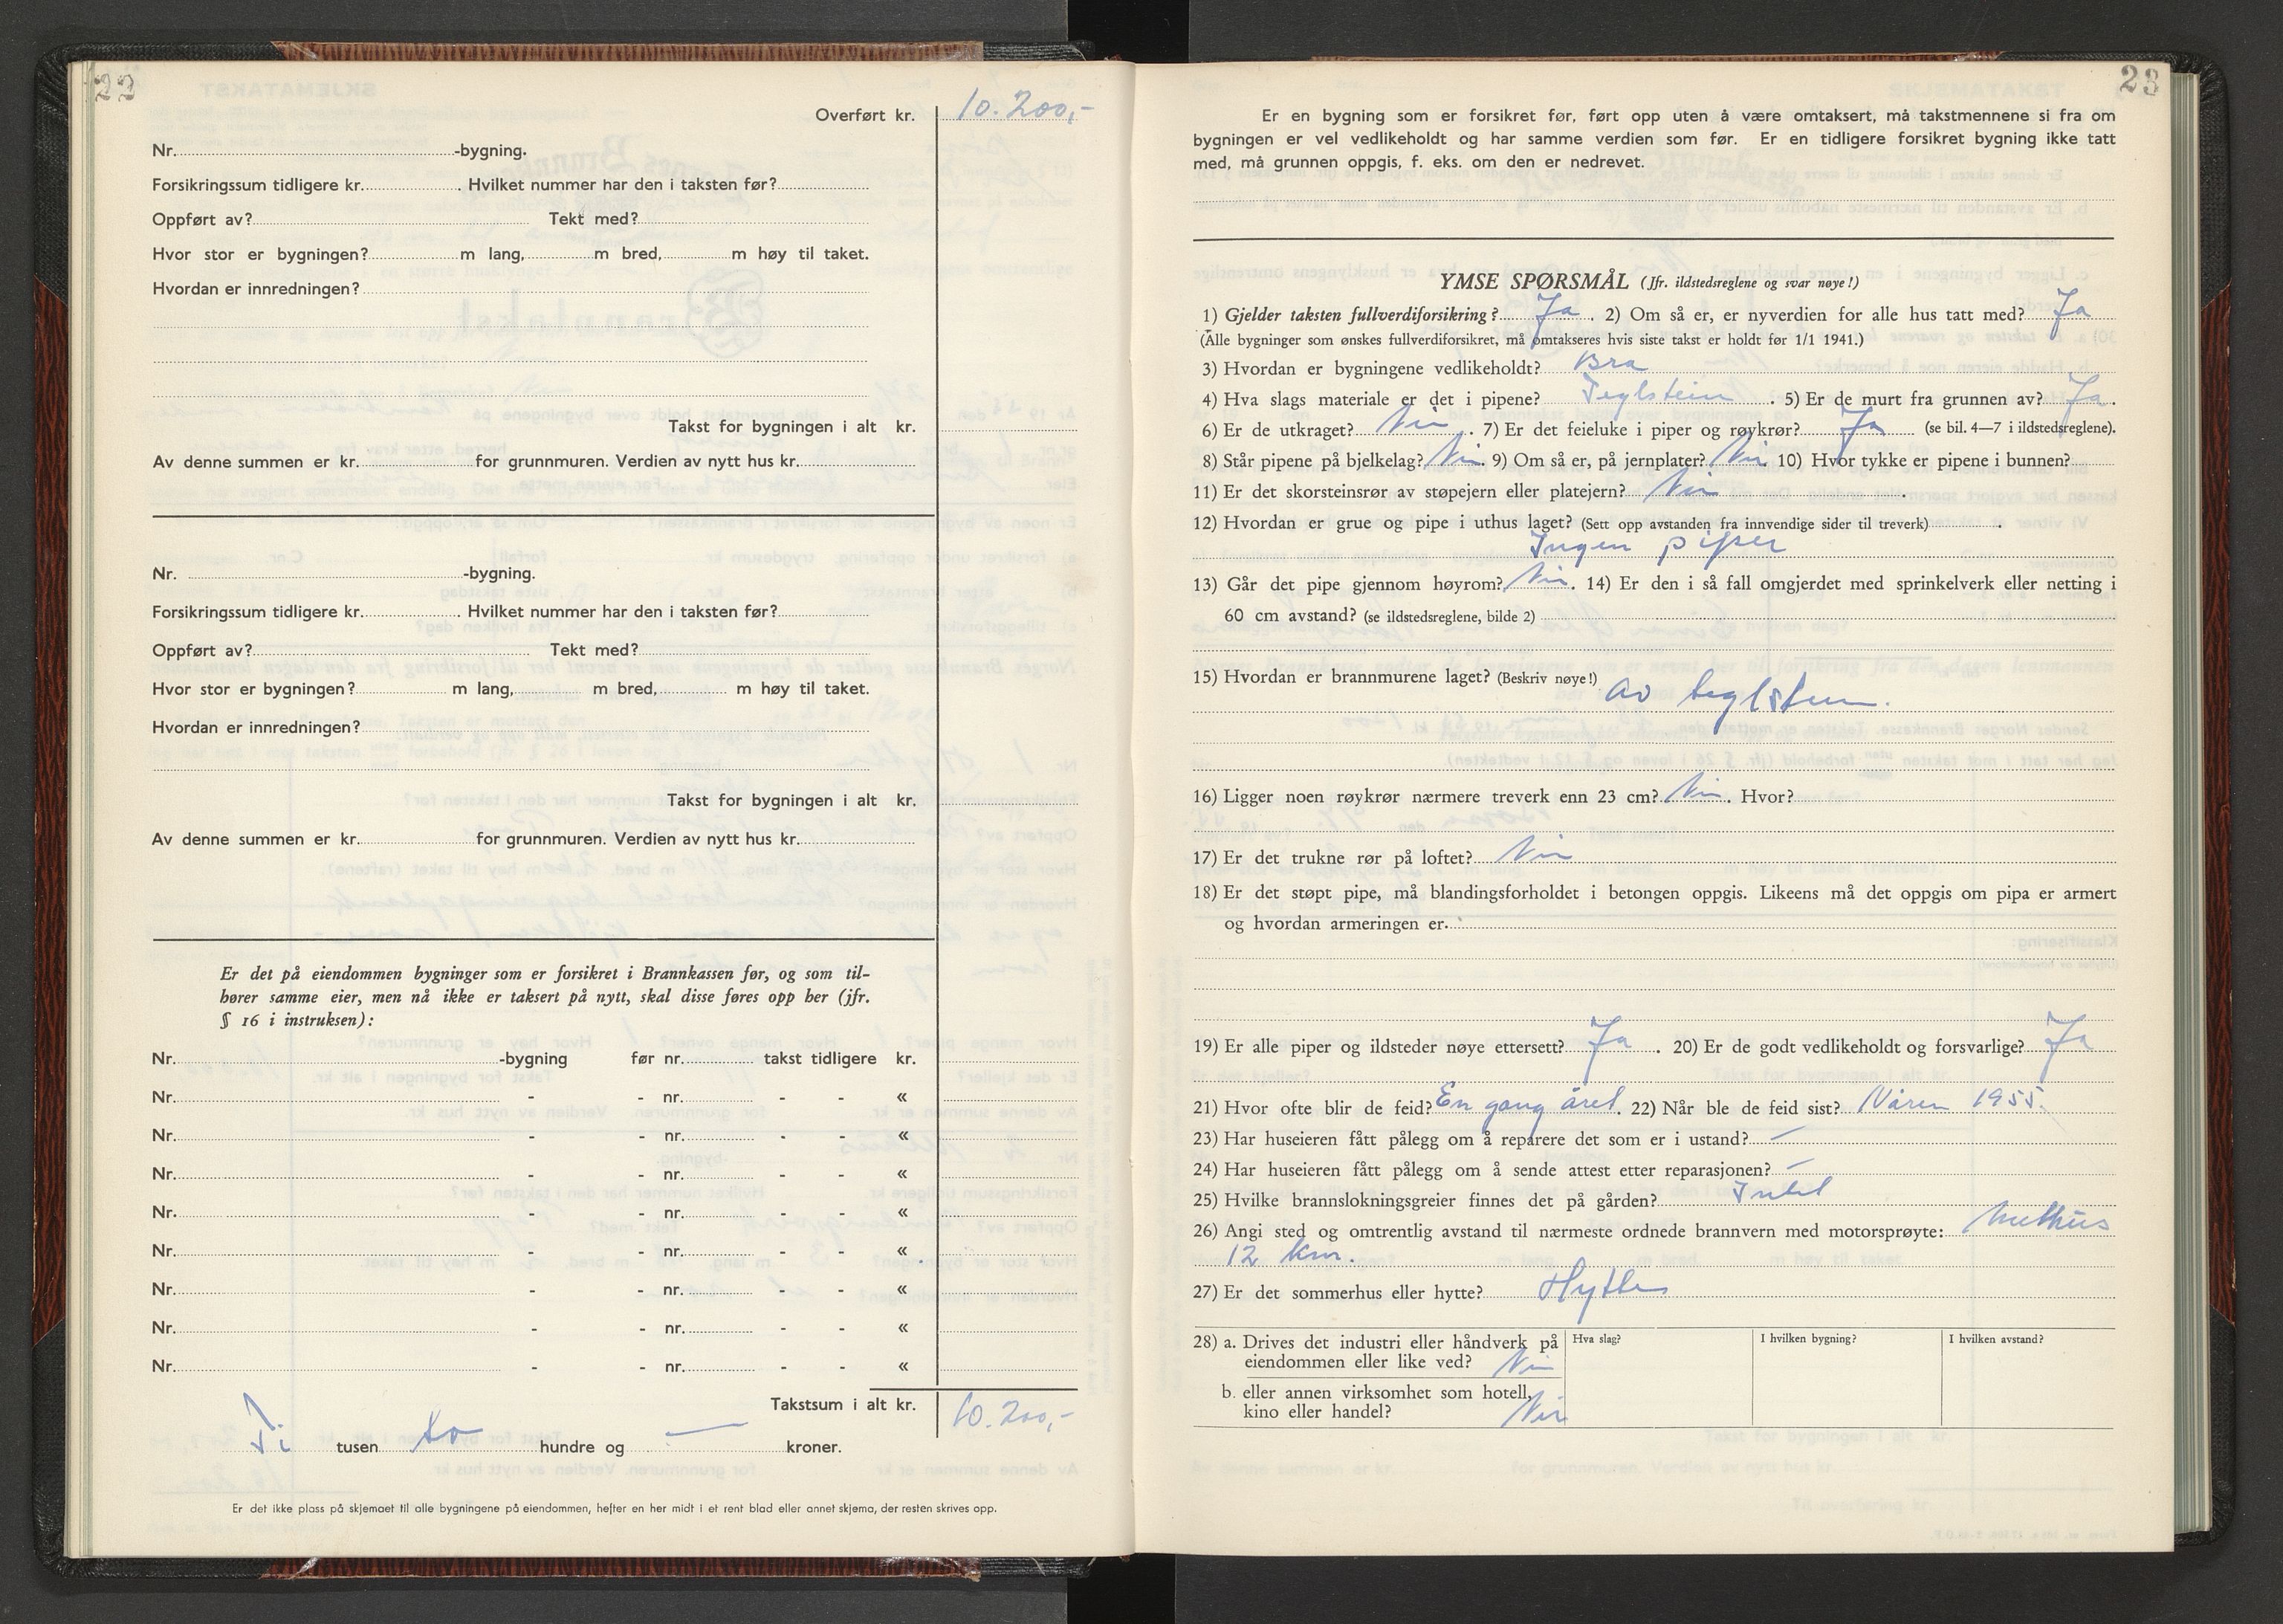 22
Overført kr. 10.200,-
Nr. -bygning.
Forsikringssum tidligere kr. . Hvilket nummer har den i taksten før?
Oppført av? Tekt med?
Hvor stor er bygningen? m lang, m bred, m høy til taket.
Hvordan er innredningen?
Takst for bygningen i alt kr.
Av denne summen er kr. for grunnmuren. Verdien av nytt hus kr.
Nr. -bygning.
Forsikringssum tidligere kr. . Hvilket nummer har den i taksten før?
Oppført av? Tekt med?
Hvor stor er bygningen? m lang, m bred, m høy til taket.
Hvordan er innredningen?
Takst for bygningen i alt kr.
Av denne summen er kr. for grunnmuren. Verdien av nytt hus kr.
Er det på eiendommen bygninger som er forsikret i Brannkassen før, og som til-
hører samme eier, men nå ikke er taksert på nytt, skal disse føres opp her (jfr.
§ 16 i instruksen):
Nr. -bygning før nr. takst tidligere kr.
Nr. - - nr. - - «
Nr. - - nr. - - «
Nr. - - nr. - - «
Nr. - - nr. - - «
Nr. - - nr. - - «
Nr. - - nr. - - «
Nr. - - nr. - - «
Nr. - - nr. - - «
Takstsum i alt kr. 10.200,-
Ti tusen to hundre og — kroner.
Er det ikke plass på skjemaet til alle bygningene på eiendommen, hefter en her midt i et rent blad eller annet skjema, der resten skrives opp.
23
Er en bygning som er forsikret før, ført opp uten å være omtaksert, må takstmennene si fra om
bygningen er vel vedlikeholdt og har samme verdien som før. Er en tidligere forsikret bygning ikke tatt
med, må grunnen oppgis, f. eks. om den er nedrevet.
YMSE SPØRSMÅL (Jfr. ildstedsreglene og svar nøye!)
1) Gjelder taksten fullverdiforsikring? Ja . 2) Om så er, er nyverdien for alle hus tatt med? Ja
(Alle bygninger som ønskes fullverdiforsikret, må omtakseres hvis siste takst er holdt før 1/1 1941.)
3) Hvordan er bygningene vedlikeholdt? Bra
4) Hva slags materiale er det i pipene? Teglstein . 5) Er de murt fra grunnen av? Ja.
6) Er de utkraget? Nei . 7) Er det feieluke i piper og røykrør? Ja (se bil. 4—7 i ildstedsreglene).
8) Står pipene på bjelkelag? Nei. 9) Om så er, på jernplater? Nei 10) Hvor tykke er pipene i bunnen?
11) Er det skorsteinsrør av støpejern eller platejern? Nei .
12) Hvordan er grue og pipe i uthus laget? (Sett opp avstanden fra innvendige sider til treverk) .
Ingen piper
13) Går det pipe gjennom høyrom? Nei. 14) Er den i så fall omgjerdet med sprinkelverk eller netting i
60 cm avstand? (se ildstedsreglene, bilde 2)
15) Hvordan er brannmurene laget? (Beskriv nøye!) av teglstein.
16) Ligger noen røykrør nærmere treverk enn 23 cm? Nei. Hvor?
17) Er det trukne rør på loftet? Nei
18) Er det støpt pipe, må blandingsforholdet i betongen oppgis. Likeens må det oppgis om pipa er armert
og hvordan armeringen er.
19) Er alle piper og ildsteder nøye ettersett? Ja . 20) Er de godt vedlikeholdt og forsvarlige? Ja
21) Hvor ofte blir de feid? En gang året. 22) Når ble de feid sist? Våren 1955.
23) Har huseieren fått pålegg om å reparere det som er i ustand? —
24) Har huseieren fått pålegg om å sende attest etter reparasjonen? —
25) Hvilke brannslokningsgreier finnes det på gården? Intet
26) Angi sted og omtrentlig avstand til nærmeste ordnede brannvern med motorsprøyte:
12 km.
27) Er det sommerhus eller hytte? Hytte
28) a. Drives det industri eller håndverk på Hva slag? I hvilken bygning? I hvilken avstand?
eiendommen eller like ved? Nei
b. eller annen virksomhet som hotell,
kino eller handel? Nei